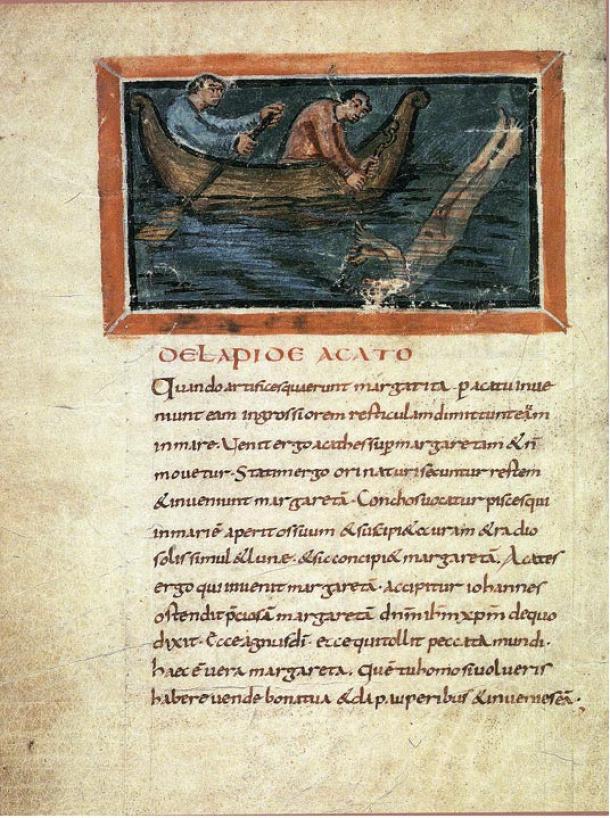 DE LAPIDE ACATO
Quando artifices querunt margarita. p acatu inue
niunt eam ingrossiorem resticulam dimittunt eam
in mare. Uenit ergo acathes sup margaretam & n̄
mouetur. Statim ergo orinaturi secuntur restem
& inueniunt margaretā. Conchos uocatur pisces qui
in mari ē aperit os suum & suscipi& & radio
solis simul & lune. & sic concipi& margaretā. Acates
ergo qui inuenit margaretā. accipitur iohannes
ostendit p̄ciosā margaretā dn̄m ih̄m xp̄m de quo
dixit. Ecce agnus dī. ecce qui tollit peccata mundi.
haec ē uera margareta. Quē tu homo si uolueris
habere uende bona tua & da pauperibus & inuenies eā.